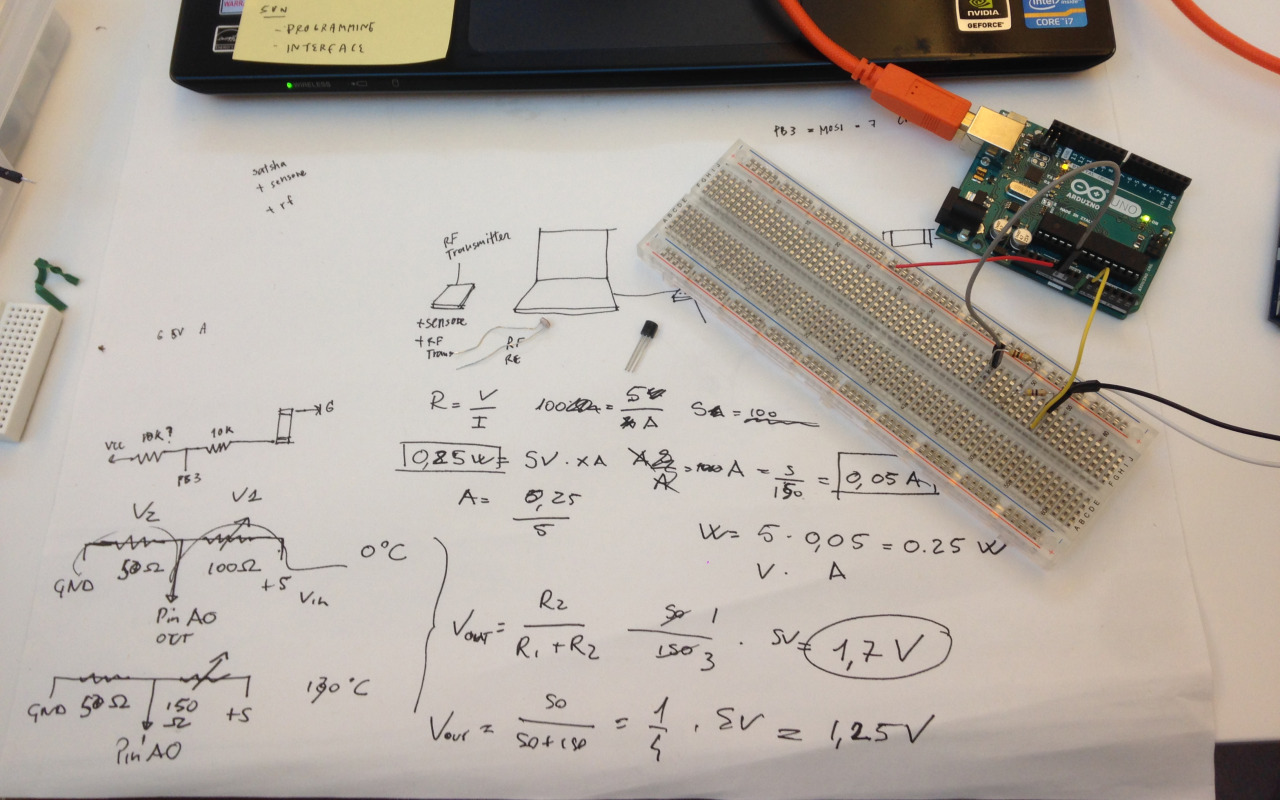 SUN
- PROGRAMMING
- INTERFACE
WIRELESS
NVIDIA
GEFORCE
CORE i7
PB3 = MOSI = 7
+ sensore
+ rf
ARDUINO
UNO
MADE IN ITALY
RF
Transmitter
+ sensore
+ RF
RF
RE
6 5V A
R = V / I
5V / A
= 100
VCC
10K?
10K
G
PB3
0,25 W = 5V · XA
A = 5 / 150 = 0,05 A
A = 0,25 / 5
W = 5 · 0,05 = 0.25 W
V · A
V2
V1
GND
50Ω
100Ω
+5
Vin
0°C
Pin A0
OUT
VOUT = R2 / R1 + R2
50 1 / 150 3 · 5V = 1,7 V
GND
50Ω
150
Ω
+5
130°C
Pin A0
Vout = 50 / 50+150 = 1 / 4 · 5V = 1,25V